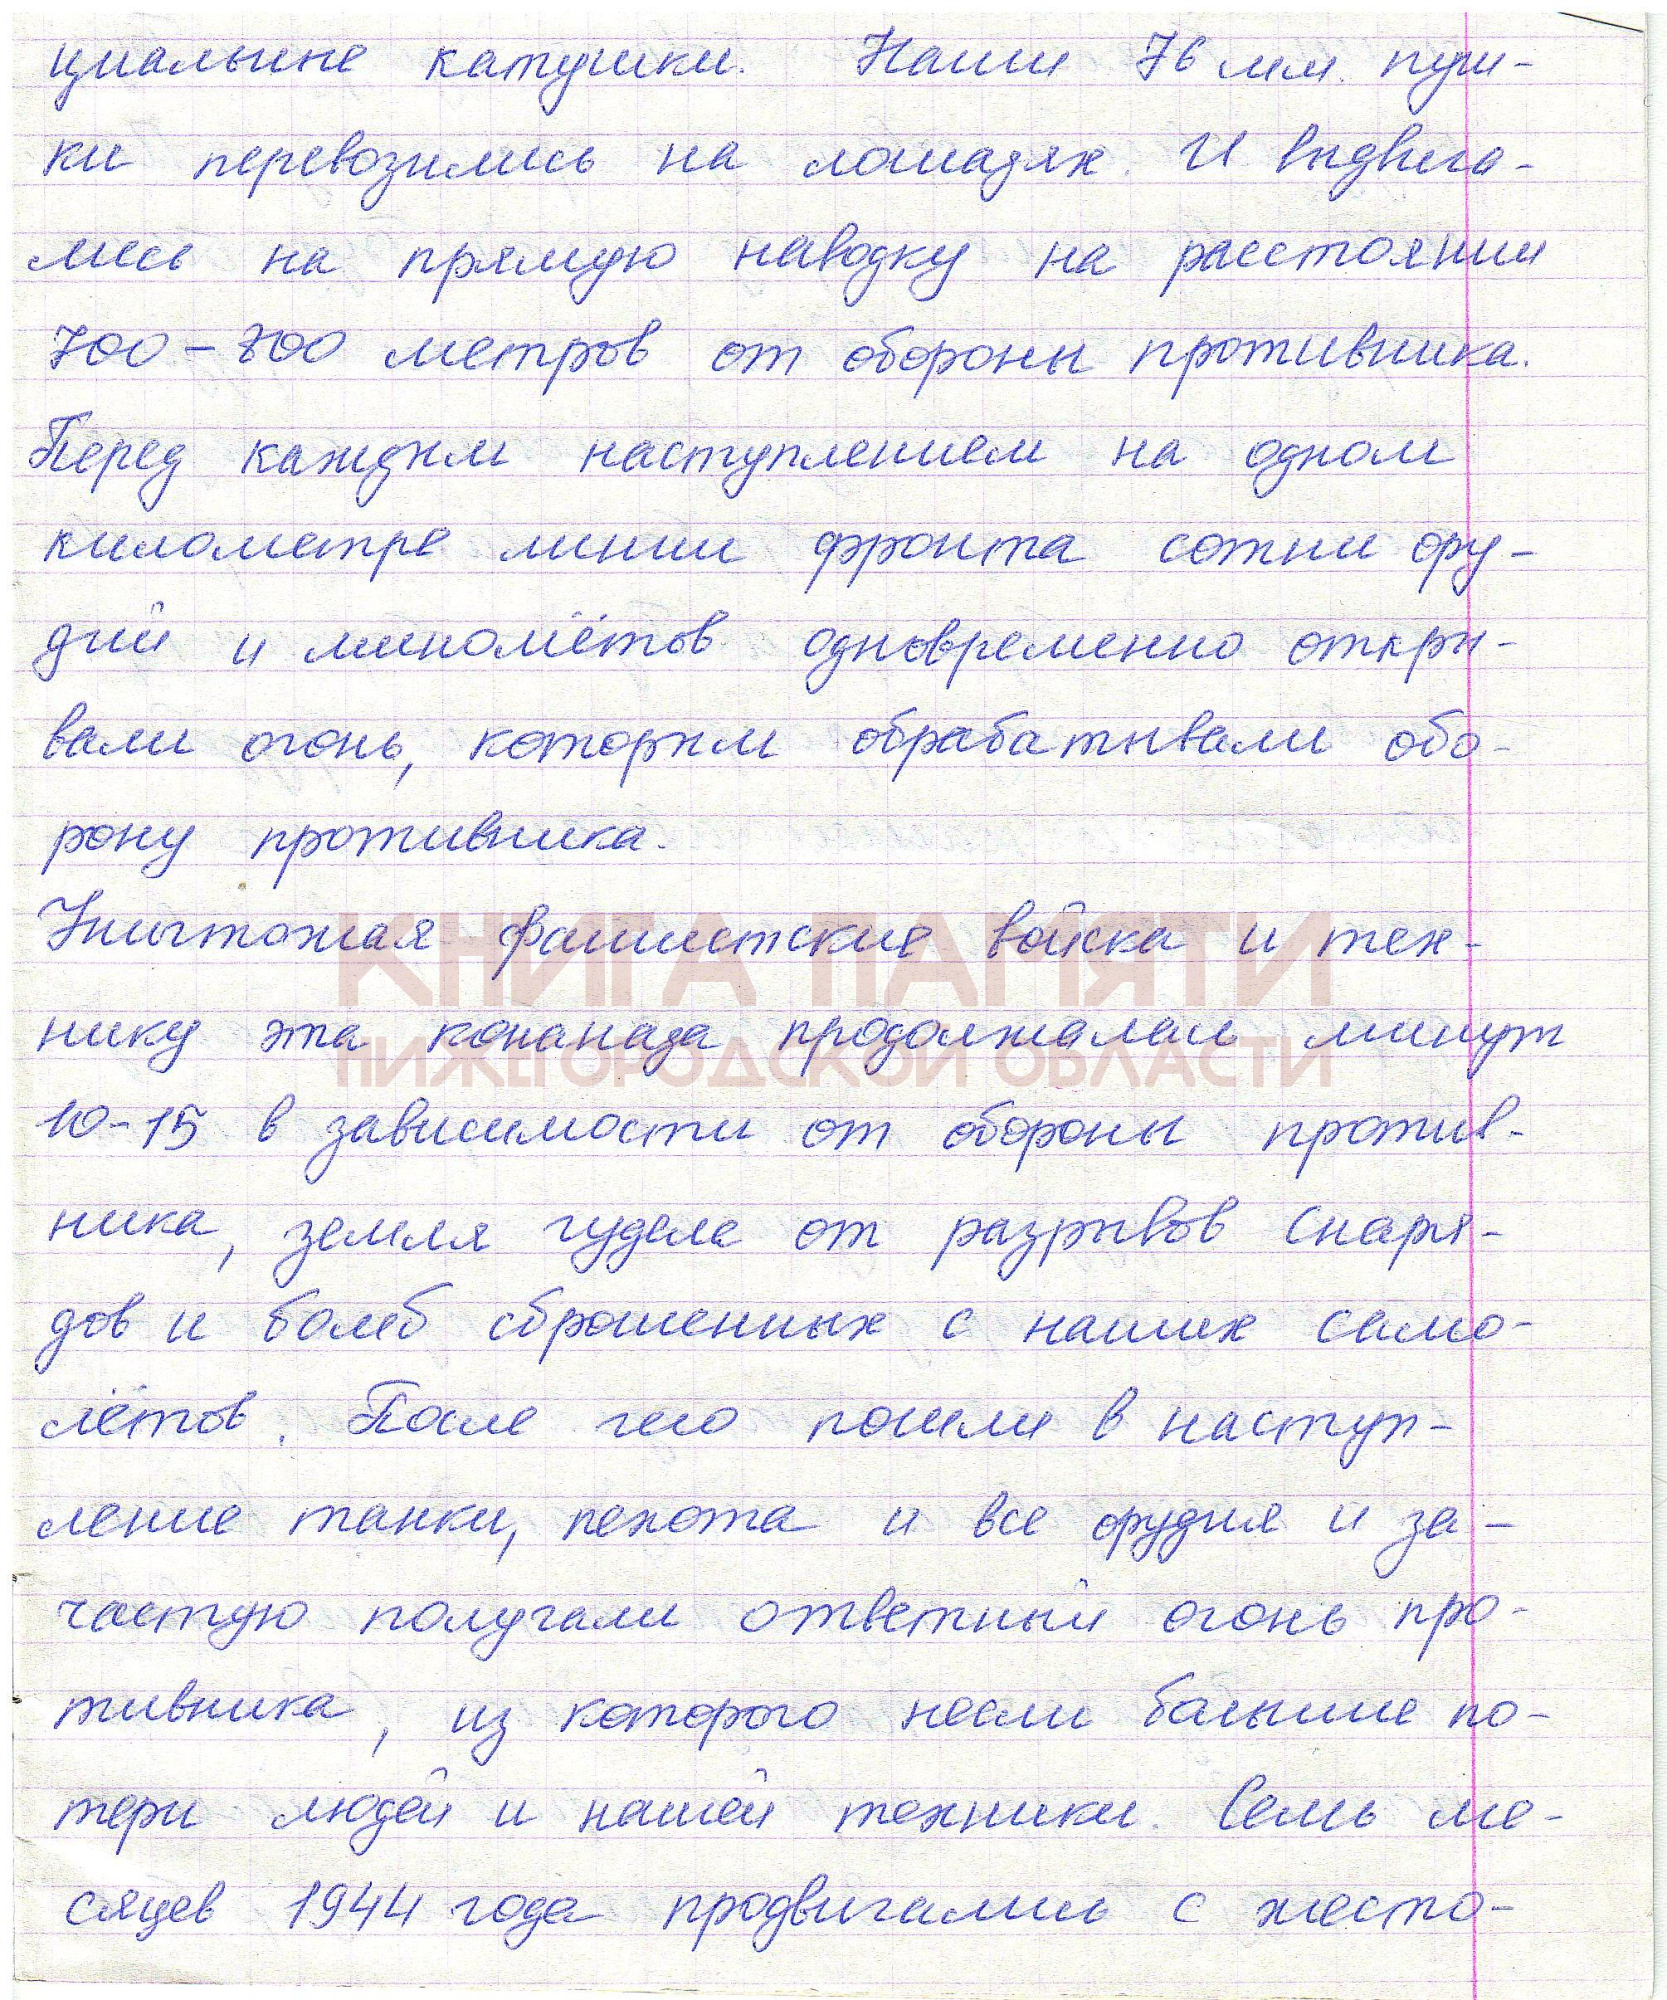 циальные катушки. Наши 76 мм. пуш-
ки перевозились на лошадях. И выдвига-
лись на прямую наводку на расстоянии
700-800 метров от обороны противника.
Перед каждым наступлением на одном
километре линии фронта сотни ору-
дий и миномётов одновременно откры-
вали огонь, которым обрабатывали обо-
рону противника.
Уничтожая фашистские войска и тех-
КНИГА ПАМЯТИ
нику эта конанада продолжалась минут
НИЖЕГОРОДСКОЙ ОБЛАСТИ
10-15 в зависимости от обороны против-
ника, земля гудела от разрывов снаря-
дов и бомб сброшенных с наших само-
лётов. После чего пошли в наступ-
ление танки, пехота и все орудия и за-
частую получали ответный огонь про-
тивника, из которого несли большие по-
тери людей и нашей техники. Семь ме-
сяцев 1944 года продвигались с жесто-